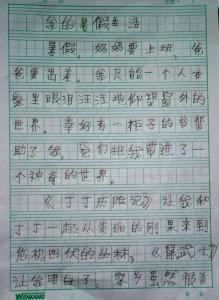 我的暑假生活
暑假，妈妈要上班，爸
爸要出差。我只能一个人在
家里眼泪汪汪地仰望窗外的
世界。幸好有一柜子的书帮
助了我，它们把我带进了一
个神奇的世界。
《丁丁历险记》让我和
丁丁一起从美丽的刚果来到
危机四伏的丛林，《鼠武士》
让我明白了，家乡虽然很美
WENKANG